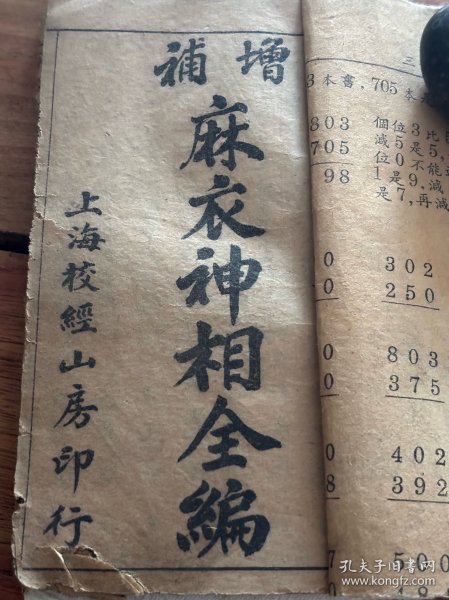 增補
麻衣神相全編
上海校經山房印行
三
3本書，705本
個位3比
減5是5，
位0不能
1是9，減
是7，再減
803
705
98
0 302
0 250
0 803
0 375
0 402
8 392
7 500
孔夫子旧书网
www.kongfz.com